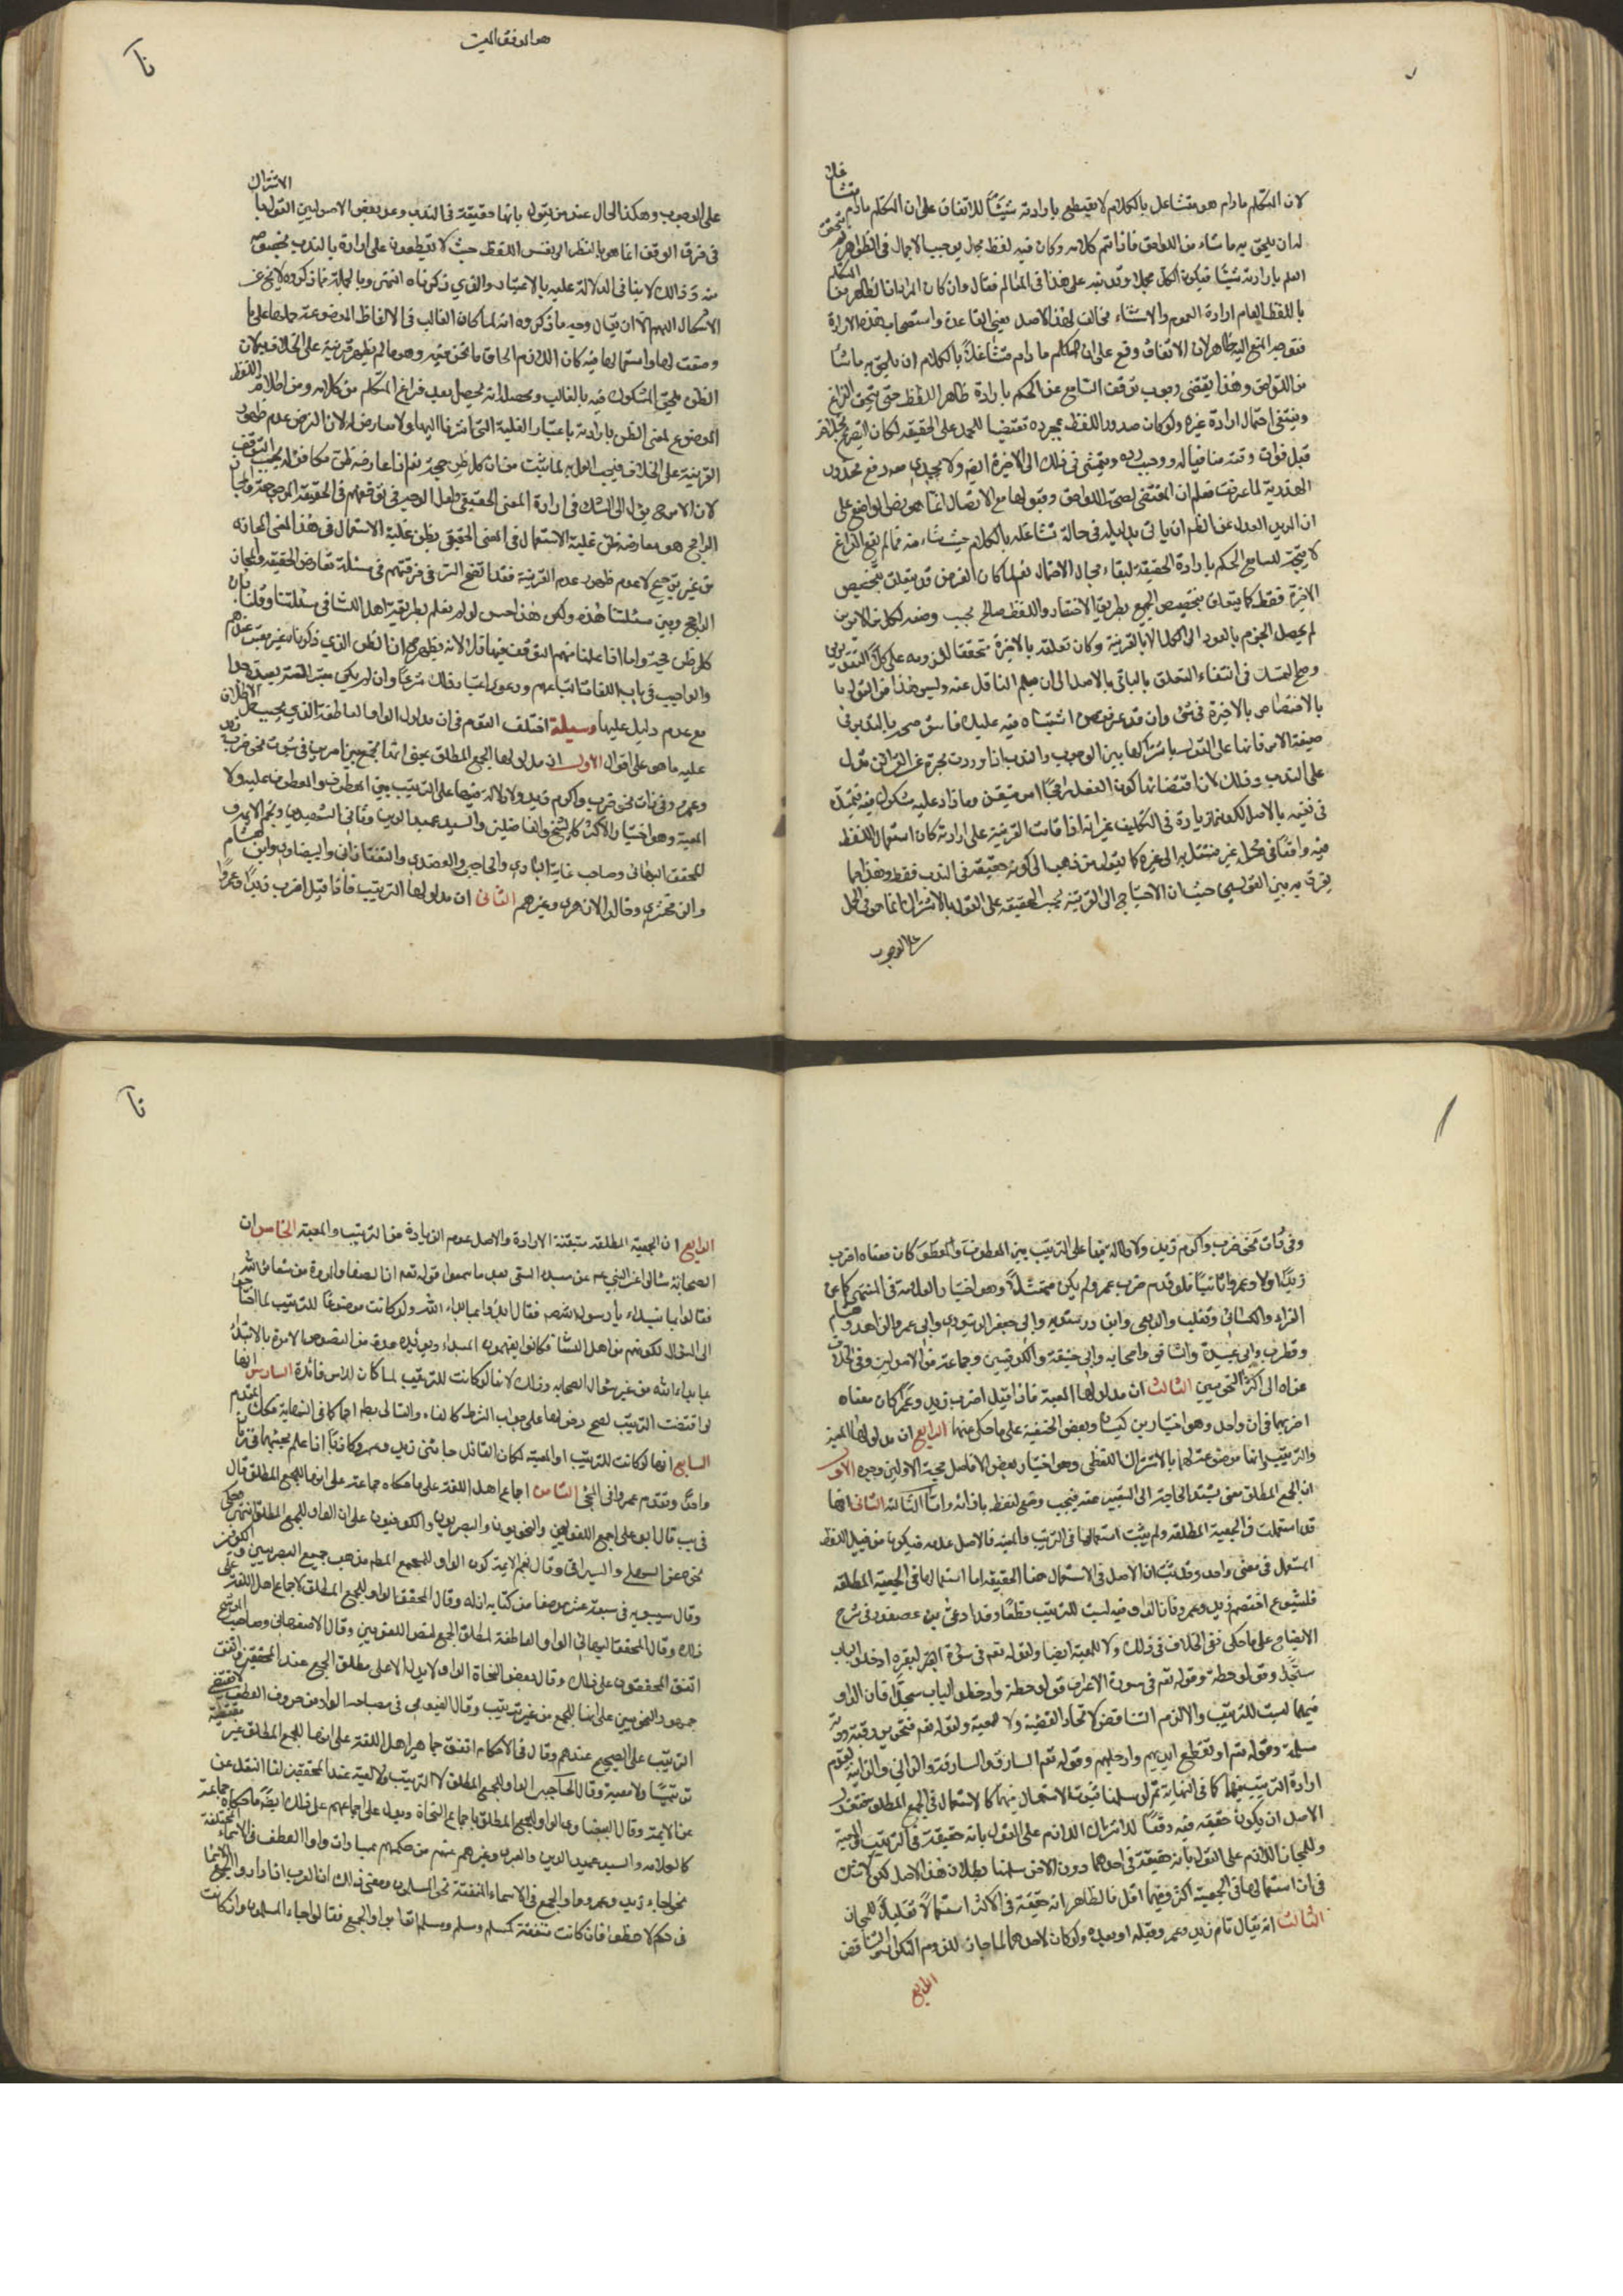 لان المتكلم مادام هو متشاغل بالكلام لا يقطع بارادته شيئاً للاتفاق على ان المتكلم مادام متشاغلا
له ان يلحق به ما شاء من اللواحق فاذا تم كلامه وكان فيه لفظ مجمل يوجب الاجمال
العلم بارادته شيئا فيكون الكل مجملا وقد نبه على هذا في المثال
باللفظ العام ارادة العموم والاستثناء مخالف لهذا الاصل يعني القاعدة واستصحاب هذه الارادة
فتوجه المنع اليه ظاهر لان الاتفاق وقع على ان المتكلم مادام متشاغلاً بالكلام ان يلحق به ما شاء
من اللواحق وهذا يقتضي وجوب توقف السامع عن الحكم بارادة ظاهر اللفظ حتى يتحقق الفراغ
وينتفي احتمال ارادة غيره ولو كان صدور اللفظ بمجرده مقتضيا للحمل على الحقيقة لكان التصريح بخلافه
قبل فوات وقته منافيا له ووجب رده ويتمشى في ذلك الى الاخيرة ايضا ولا يجديه دفع محذور
الهذرية لما عرفت فعلم ان المقتضي لصحة اللواحق وقبولها مع الاتصال انما هو نص الواضع على
ان لمريد العدول عن الظاهر ان ياتي بدليله في حالة تشاغله بالكلام حيث شاء منه فما لم يقع الفراغ
لا يتجه للسامع الحكم بارادة الحقيقة لبقاء مجال الاحتمال نعم لما كان الغرض قد يتعلق بتخصيص
الاخيرة فقط كما يتعلق بتخصيص الجميع بطريق الاختصار واللفظ صالح بحسب وضعه لكل من الامرين
لم يحصل الجزم بالعود الى الكل الا بالقرينة وكان تعلقه بالاخيرة متحققا للزومه على كل التقديرين
وصح التمسك في انتفاء التعلق بالباقي بالاصل الى ان يعلم الناقل عنه وليس هذا من القول
بالاختصاص بالاخيرة في شيء وان قد عرض اشتباه فيه عليك فاستوضحه بالتدبر في
صيغة الامر فانها على القول باشتراكها بين الوجوب والندب اذا وردت مجردة عن القرائن تدل
على الندب وذلك لان اقتضائها كون الفعل راجحا امر متيقن وما زاد عليه مشكوك فيه فيتمسك
في نفيه بالاصل لكونه زيادة في التكليف غير انه اذا قامت القرينة على ارادته كان استعمال اللفظ
فيه واقعا في محله غير منتقل به الى غيره كما يقول من ذهب الى كونه حقيقة في الندب فقط وهذا مما
يفرق به بين القولين حيث ان الاحتياج الى القرينة بحسب الحقيقة على القول بالاشتراك انما هو في الحمل
على الوجوب
هو الموفق المعين
على الوجوب وهكذا الحال عند من يقول بانها حقيقة في الندب وعد بعض الاصوليين القول بالاشتراك
في فرق الوقف انما هو بالنظر الى نفس اللفظ حيث لا يقطعون على ارادة الندب بخصوصه
منه وذلك لا ينافي الدلالة عليه بالاعتبار الذي ذكرناه انتهى وبالجملة فما ذكروه لا يخ عن
الاشكال اللهم الا ان يقال وجه ما ذكروه انه لما كان الغالب في الالفاظ الموضوعة حملها على ما
وضعت لها واستعمالها فيه كان اللازم الحاق ما نحن فيه وهو ما لم يظهر قرينة على الخلاف لمكان
الظن يلحق المشكوك فيه بالغالب وبحصله انه يحصل بعد فراغ المتكلم من كلامه ومن اطلاقه اللفظ
الموضوع لمعنى الظن بارادته باعتبار الغلبة التي اشرنا اليها ولا معارض له لان الفرض عدم ظهور
القرينة على الخلاف فيجب العمل به لما ثبت من ان كل ظن حجة نعم اذا عارضه ظن مكافئ له يجب التوقف
لان الامر ح يؤل الى الشك في ارادة المعنى الحقيقي ولعل الوجه في توقفهم في الحقيقة المرجوحة والمجاز
الراجح هو معارضة ظن غلبة الاستعمال في المعنى الحقيقي بظن غلبة الاستعمال في هذا المعنى المجازي
من غير ترجيح لا عدم ظهور عدم القرينة فقد اتضح السر في فرقهم في مسئلة تعارض الحقيقة والمجاز
الراجح وبين مسئلتنا هذه ولكن هذا حسن لو لم نعلم بطريقة اهل اللسان في مسئلتنا وقلنا بان
كل ظن حجة واما اذا علمنا منهم التوقف فيها فلا لانه يظهر ح ان الظن الذي ذكرناه غير معتبر عندهم
والواجب في باب اللغات اتباعهم ودعوى اعتبار ذلك شرعًا وان لم يكن معتبرا لغة بعيدة جدا
مع عدم دليل عليها وسيلة اختلف القوم في ان مدلول الواو العاطفة الذي يجب حمل الاطلاق
عليه ما هو على اقوال الاول ان مدلولها الجمع المطلق بمعنى انها تجمع بين امرين في ثبوت نحو ضرب زيد
وعمرو وفي ذات نحو ضرب واكرم زيد ولا دلالة فيها على الترتيب بين المعطوف والمعطوف عليه ولا
المعية وهو اختيار الاكثر كالشيخ والفاضلين والسيد عميد الدين وثاني الشهيدين ونجم الائمة
المحقق البهائي وصاحب غاية البادي والحاجبي والعضدي والتفتازاني والبيضاوي وابن هشام
والزمخشري وخالد الازهري وغيرهم الثاني ان مدلولها الترتيب فاذا قيل اضرب زيدًا وعمروًا
وفي ذات نحو ضرب واكرم زيد ولا دلالة فيها على الترتيب بين المعطوف والمعطوف كان معناه اضرب
زيدًا اولا وعمروًا ثانيًا فلو قدم ضرب عمرو لم يكن ممتثلاً وهو اختيار العلامة في المنتهى كما عن
الفراء والكسائي وثعلب والربعي وابن درستويه وابي جعفر الدينوري وابي عمرو الزاهد وهشام
وقطرب وابي عبيدة والشافعي واصحابه وابي حنيفة والكوفيين وجماعة من الاصوليين وفي الخلاف
عزاه الى اكثر النحويين الثالث ان مدلولها المعية فاذا قيل اضرب زيد وعمرًا كان معناه
اضربهما في ان واحد وهو اختيار بن كيسان وبعض الحنفية على ما حكي عنهما الرابع ان مدلولها المعية
والترتيب وانها موضوعة لهما بالاشتراك اللفظي وهو اختيار بعض الافاضل حجة الاولين وجوه الاول
ان الجمع المطلق معنى يشتد الحاجة الى التعبير عنه فيجب وضع لفظ بازائه وانتا الثالثه الثاني انها
قد استعملت في الجمعية المطلقة ولم يثبت استعمالها في الترتيب والمعية فالاصل عدمه فيكون من قبيل اللفظ
المستعمل في معنى واحد وقد ثبت ان الاصل في الاستعمال هنا الحقيقة اما استعمالها في الجمعية المطلقة
فلشيوع اختصم زيد وعمرو فان الواو فيه ليست للترتيب قطعًا وقد ادعى بن عصفور في شرح
الايضاح على ما حكي نفي الخلاف في ذلك ولا للمعية ايضا ولقوله تعم في سورة البقرة ادخلوا الباب
سجّدا وقولوا حطة وقوله تعم في سورة الاعراف قولوا حطة وادخلوا الباب سجدًا فان الواو
فيهما ليست للترتيب والا لزم التناقض لاتحاد القضية ولا للمعية ولقوله تعم فتحرير رقبة ودية
مسلمة وقوله تعم او تقطع ايديهم وارجلهم وقوله تعم السارق والسارقة والزاني والزانية لعدم
ارادة الترتيب فيها كما في النهاية ثم لو سلمنا ثبوت الاستعمال فيهما كالاستعمال في الجمع المطلق فنقول
الاصل ان يكون حقيقة فيه دفعًا للاشتراك اللازم على القول بانه حقيقة في الترتيب والمعية
وللمجاز اللازم على القول بانه حقيقة في احدهما دون الاخر سلمنا بطلان هذا الاصل لكن لا شك
في ان استعمالها في الجمعية اكثر وفيهما اقل فالظاهر انه حقيقة في الاكثر استعمالا تقليلاً للمجاز
الثالث انه يقال قام زيد وعمرو قبله او بعده ولو كان لاحدهما لما جاز للزوم التكرار او التناقض
الرابع
الرابع ان الجمعية المطلقة متيقنة الارادة والاصل عدم الزيادة من الترتيب والمعية الخامس ان
الصحابة سالوا عن النبي ص عن مبدا السعي بعد ما سمعوا قوله تعم ان الصفا والمروة من شعائر الله
فقالوا بما نبداء يا رسول الله ص فقال ابدؤا بما بداء الله ولو كانت موضوعًا للترتيب لما احتاجوا
الى السؤال لكونهم من اهل اللسان فكانوا يفهمون المبداء ويؤيده عدة من النصوص الامرة بالابتداء
بما بداء الله من غير سؤال الصحابه وذلك لانها لو كانت للترتيب لما كان للناس فائدة السادس انها
لو اقتضت الترتيب لصح دخولها على جواب الشرط كالفاء والتالي بط اجماعا كما في النهاية فكذا المقدم
السابع انها لو كانت للترتيب او المعية لكان القائل جائني زيد وعمرو كاذبًا اذا علم مجيئهما في زمان
واحد وتقدم عمرو في المجئ الثامن اجماع اهل اللغة على ما حكاه جماعة على انها للجمع المطلق قال
في يب قال ابو علي اجمع اللغويين والنحويون والبصريون والكوفيون على ان الواو للجمع المطلق
نحوه عن السهيلي والسيرافي وقال نجم الائمة كون الواو للجمع المطلق مذهب جميع البصريين والكوفيين
وقال سيبويه في سبعة عشر موضعا من كتابه انها له وقال المحقق الواو للجمع المطلق لاجماع اهل اللغة على
ذلك وقال المحقق البهائي الواو العاطفة لمطلق الجمع لنص اللغويين وقال الاصفهاني وصاحب
اتفق المحققون على ذلك وقال بعض النحاة الواو لا يدل الا على مطلق الجمع عند المحققين واتفق
جمهور النحويين على انها للجمع من غير ترتيب وقال الفيومي في مصباحه الواو من حروف العطف لا يقتضي
الترتيب على الصحيح عندهم وقال في الاحكام اتفق جماهير اهل اللغة على انها للجمع المطلق غير مقتضية
ترتيبًا ولا معية وقال الحاجبي الواو للجمع المطلق لا الترتيب ولا لمعية عند المحققين لنا النقل عن
عن الائمة وقال البيضاوي الواو للجمع المطلق باجماع النحاة ويعول على اجماعهم على ذلك ايضًا ما حكاه جماعة
كالعلامة والسيد عميد الدين والعبري وغيرهم عنهم من حكمهم بمساوات واو العطف في الاسماء المختلفة
نحو جاء زيد وعمرو واو الجمع في الاسماء المتفقة نحو المسلمون ومعنى ذلك ان العرب اذا ارادوا
في حكم لاحظوا فان كانت متفقة كمسلم ومسلم ومسلم اتوا بواو الجمع فقالوا جاء المسلمون وان كانت